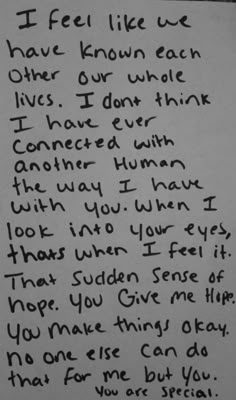 I feel like we
have known each
other our whole
lives. I dont think
I have ever
connected with
another Human
the way I have
with you. When I
look into your eyes,
thats when I feel it.
That Sudden Sense of
hope. You Give me Hope.
You make things okay.
no one else can do
that for me but you.
You are special.